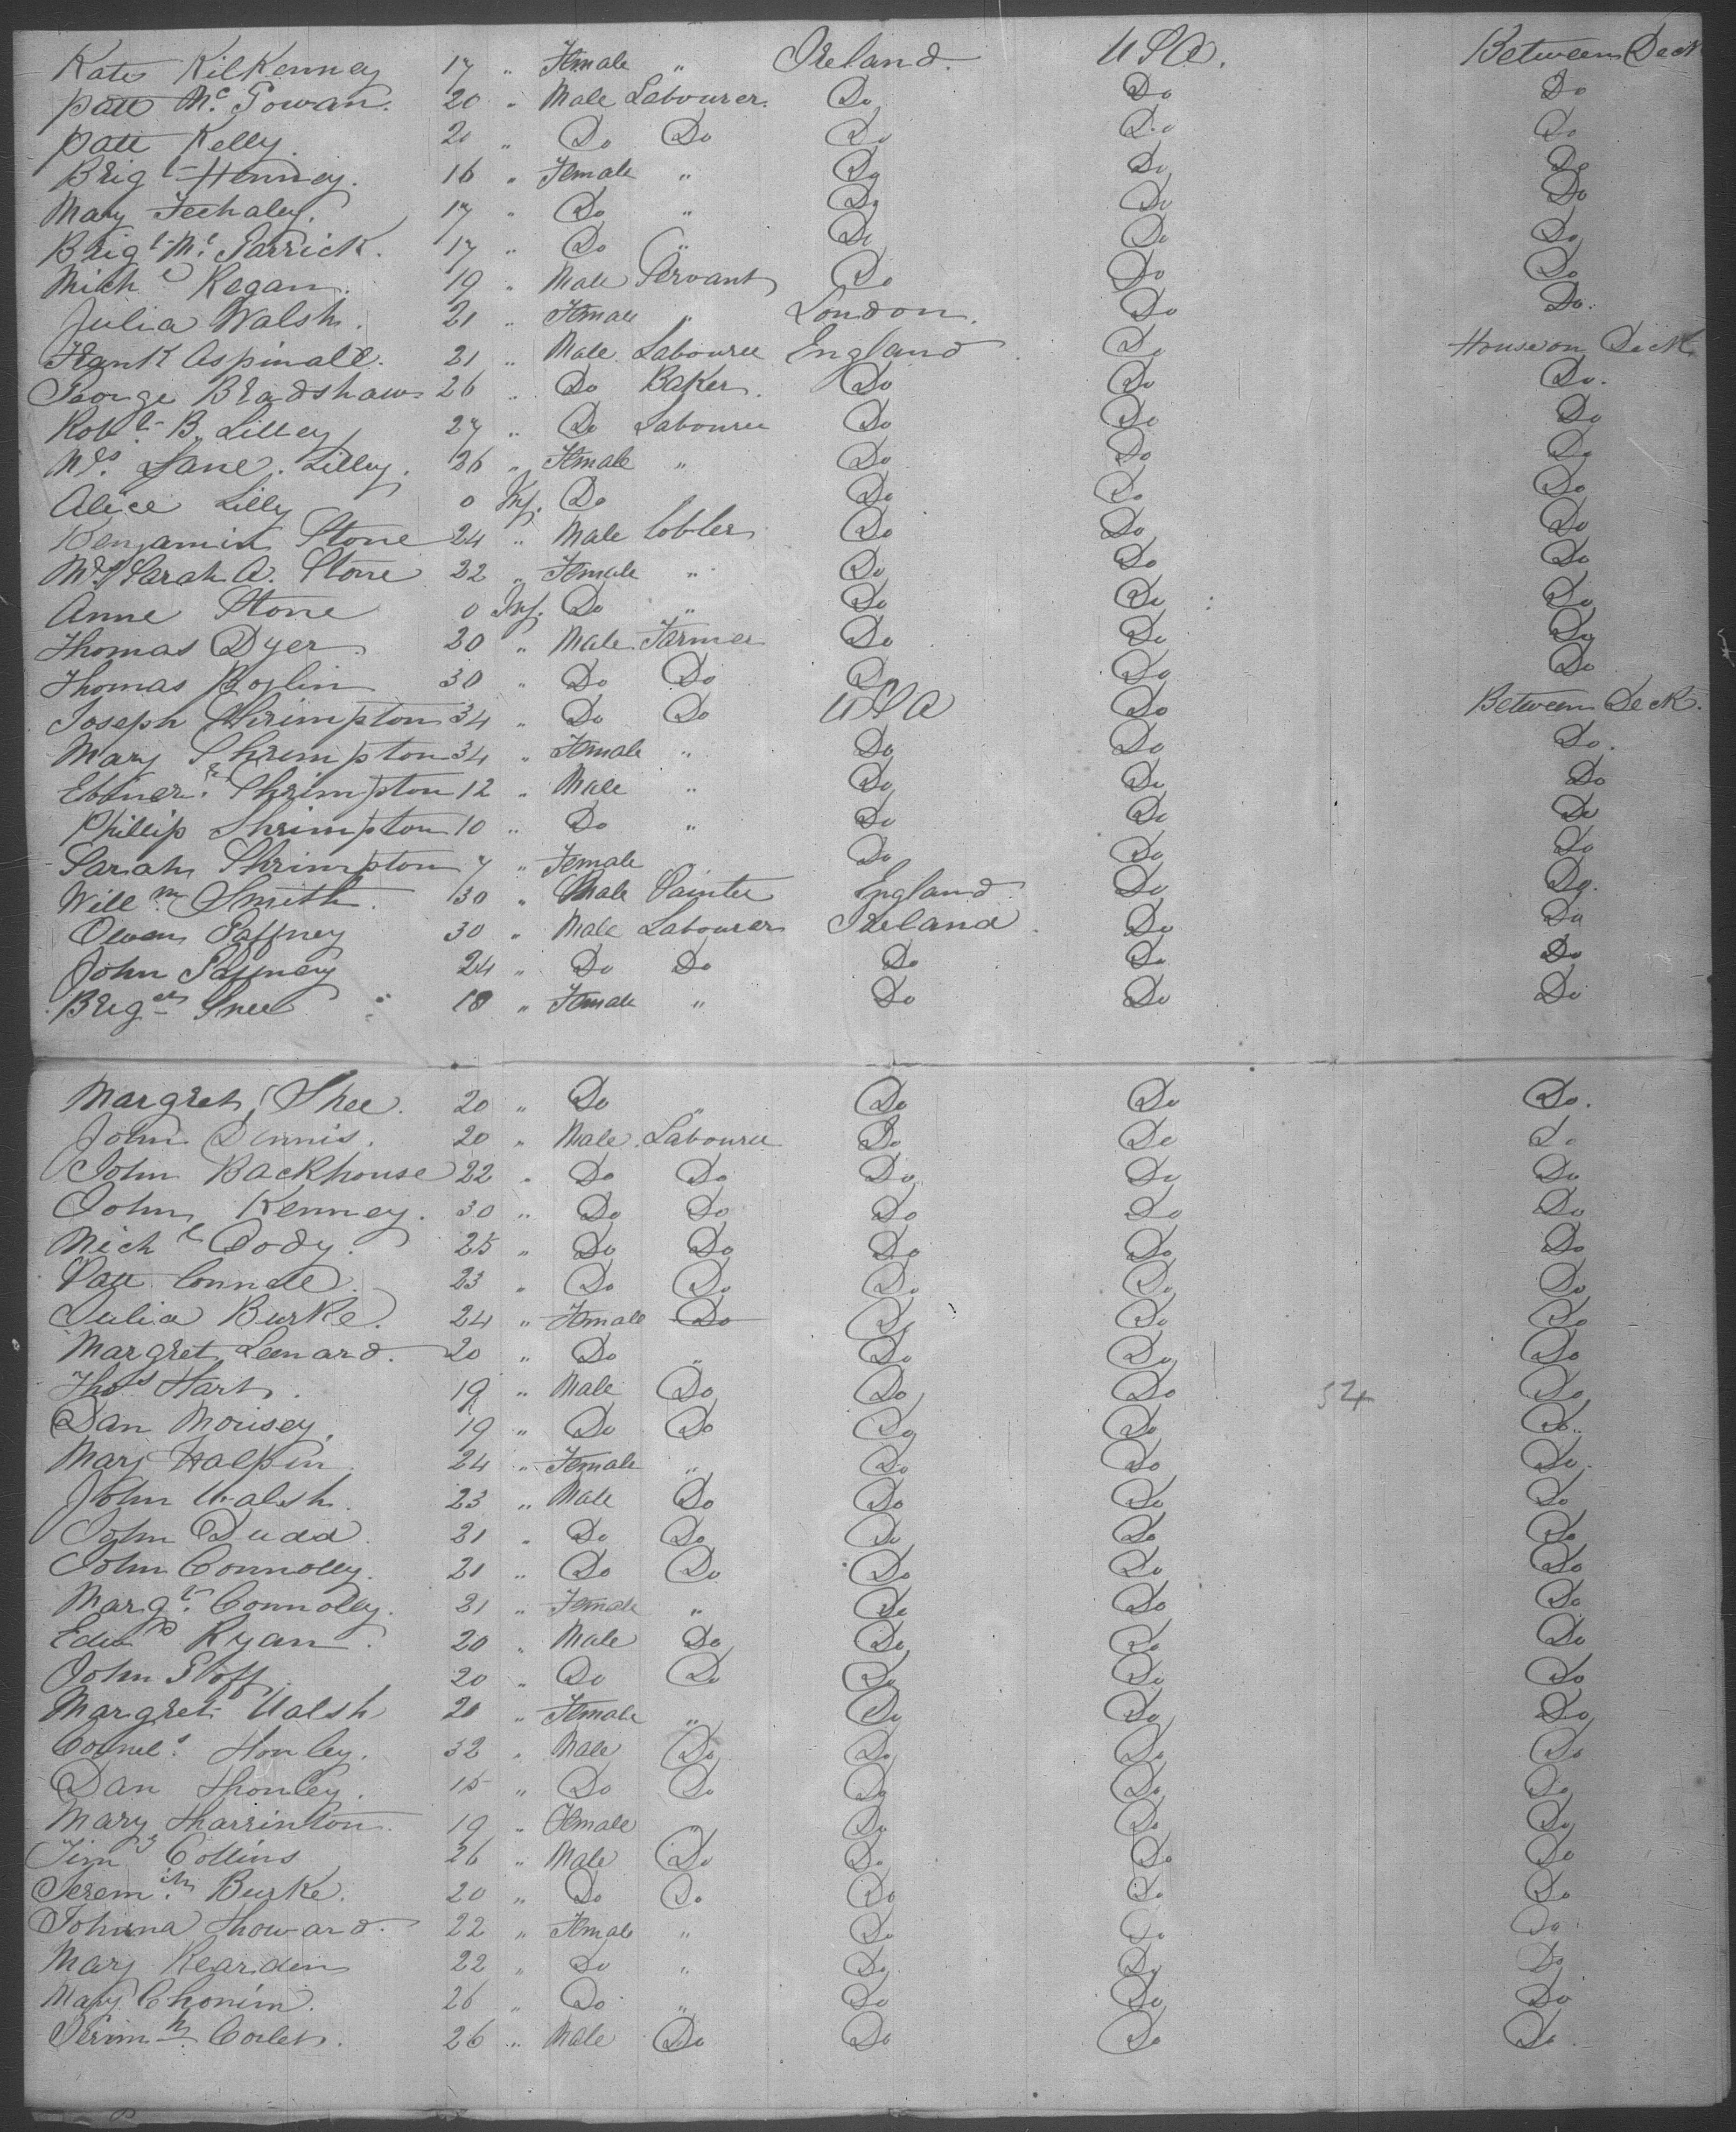 Kate KilKenney 17 " Female " Ireland. U S A. Between Deck
Patt Mc Gowan. 20 " Male Labourer. Do Do Do
Patt Kelly. 20 " Do Do Do Do Do
Brigt Henney. 16 " Female " Do Do Do
Mary Feehaley. 17 " Do " Do Do Do
Brigt Mc Garrick. 17 " Do " Do Do Do
Michl Regan. 19 " Male Servant Do Do Do
Julia Walsh. 21 " Female " London. Do Do.
Frank Aspinall. 21 " Male Labourer England Do House on Deck
George Bradshaw 26 " Do Baker. Do Do Do.
Robt B. Lilley 27 " Do Labourer Do Do Do
Mrs Jane. Lilley. 26 " Female " Do Do Do
Alice Lilly 0 Inf. Do Do Do Do
Benjamin Stone 24 " Male Cobler Do Do Do
Mrs Sarah A. Stone 22 " Female " Do Do Do
Anne Stone 0 Inf. Do " Do Do Do
Thomas Dyer 20 " Male Farmer Do Do Do
Thomas 30 " Do Do Do Do Do
Joseph Shrimpton 34 " Do Do U S A Do Between Deck.
Mary Shrimpton 34 " Female " Do Do Do.
Ebener. Shrimpton 12 " Male " Do Do Do
Phillip Shrimpton 10 " Do " Do Do Do
Sarah Shrimpton 7 " Female Do Do Do
Willm Smith. 30 " Male Painter England. Do Do.
Owen Gaffney 30 " Male Labourer Ireland. Do Do
John Gaffney 24 " Do Do Do Do Do
18 " Female " Do Do Do
Margret Shee. 20 " Do " Do Do Do.
John Dennis. 20 " Male Labourer Do Do Do
John Backhouse 22 " Do Do Do Do Do
John Kenney. 30 " Do Do Do Do Do
Michl Cody. 25 " Do Do Do Do Do
Patt 23 " Do Do Do Do Do
Julia Burke. 24 " Female Do Do Do Do
Margret Leenard. 20 " Do " Do Do Do
Thos Hart. 19 " Male Do Do Do 54 Do
Dan Morisey. 19 " Do Do Do Do Do.
Mary Halpin 24 " Female " Do Do Do.
John Walsh. 23 " Male Do Do Do Do
John Dudd. 21 " Do Do Do Do Do
John Connolly. 21 " Do Do Do Do Do
Margt. Connolly. 21 " Female " Do Do Do
Edwd Ryan. 20 " Male Do Do Do Do
John 20 " Do Do Do Do Do
Margret Walsh 20 " Female " Do Do Do
Cornels. Honley. 32 " Male Do Do Do Do
Dan Honley. 15 " Do Do Do Do Do
Mary Harrinton. 19 " Female " Do Do Do
Timy Collins 26 " Male Do Do Do Do
Jeremih. Burke. 20 " Do Do Do Do Do
Johanna Howard. 22 " Female " Do Do Do
Mary Rearden 22 " Do " Do Do Do
Mary 26 " Do " Do Do Do
26 " Male Do Do Do Do.